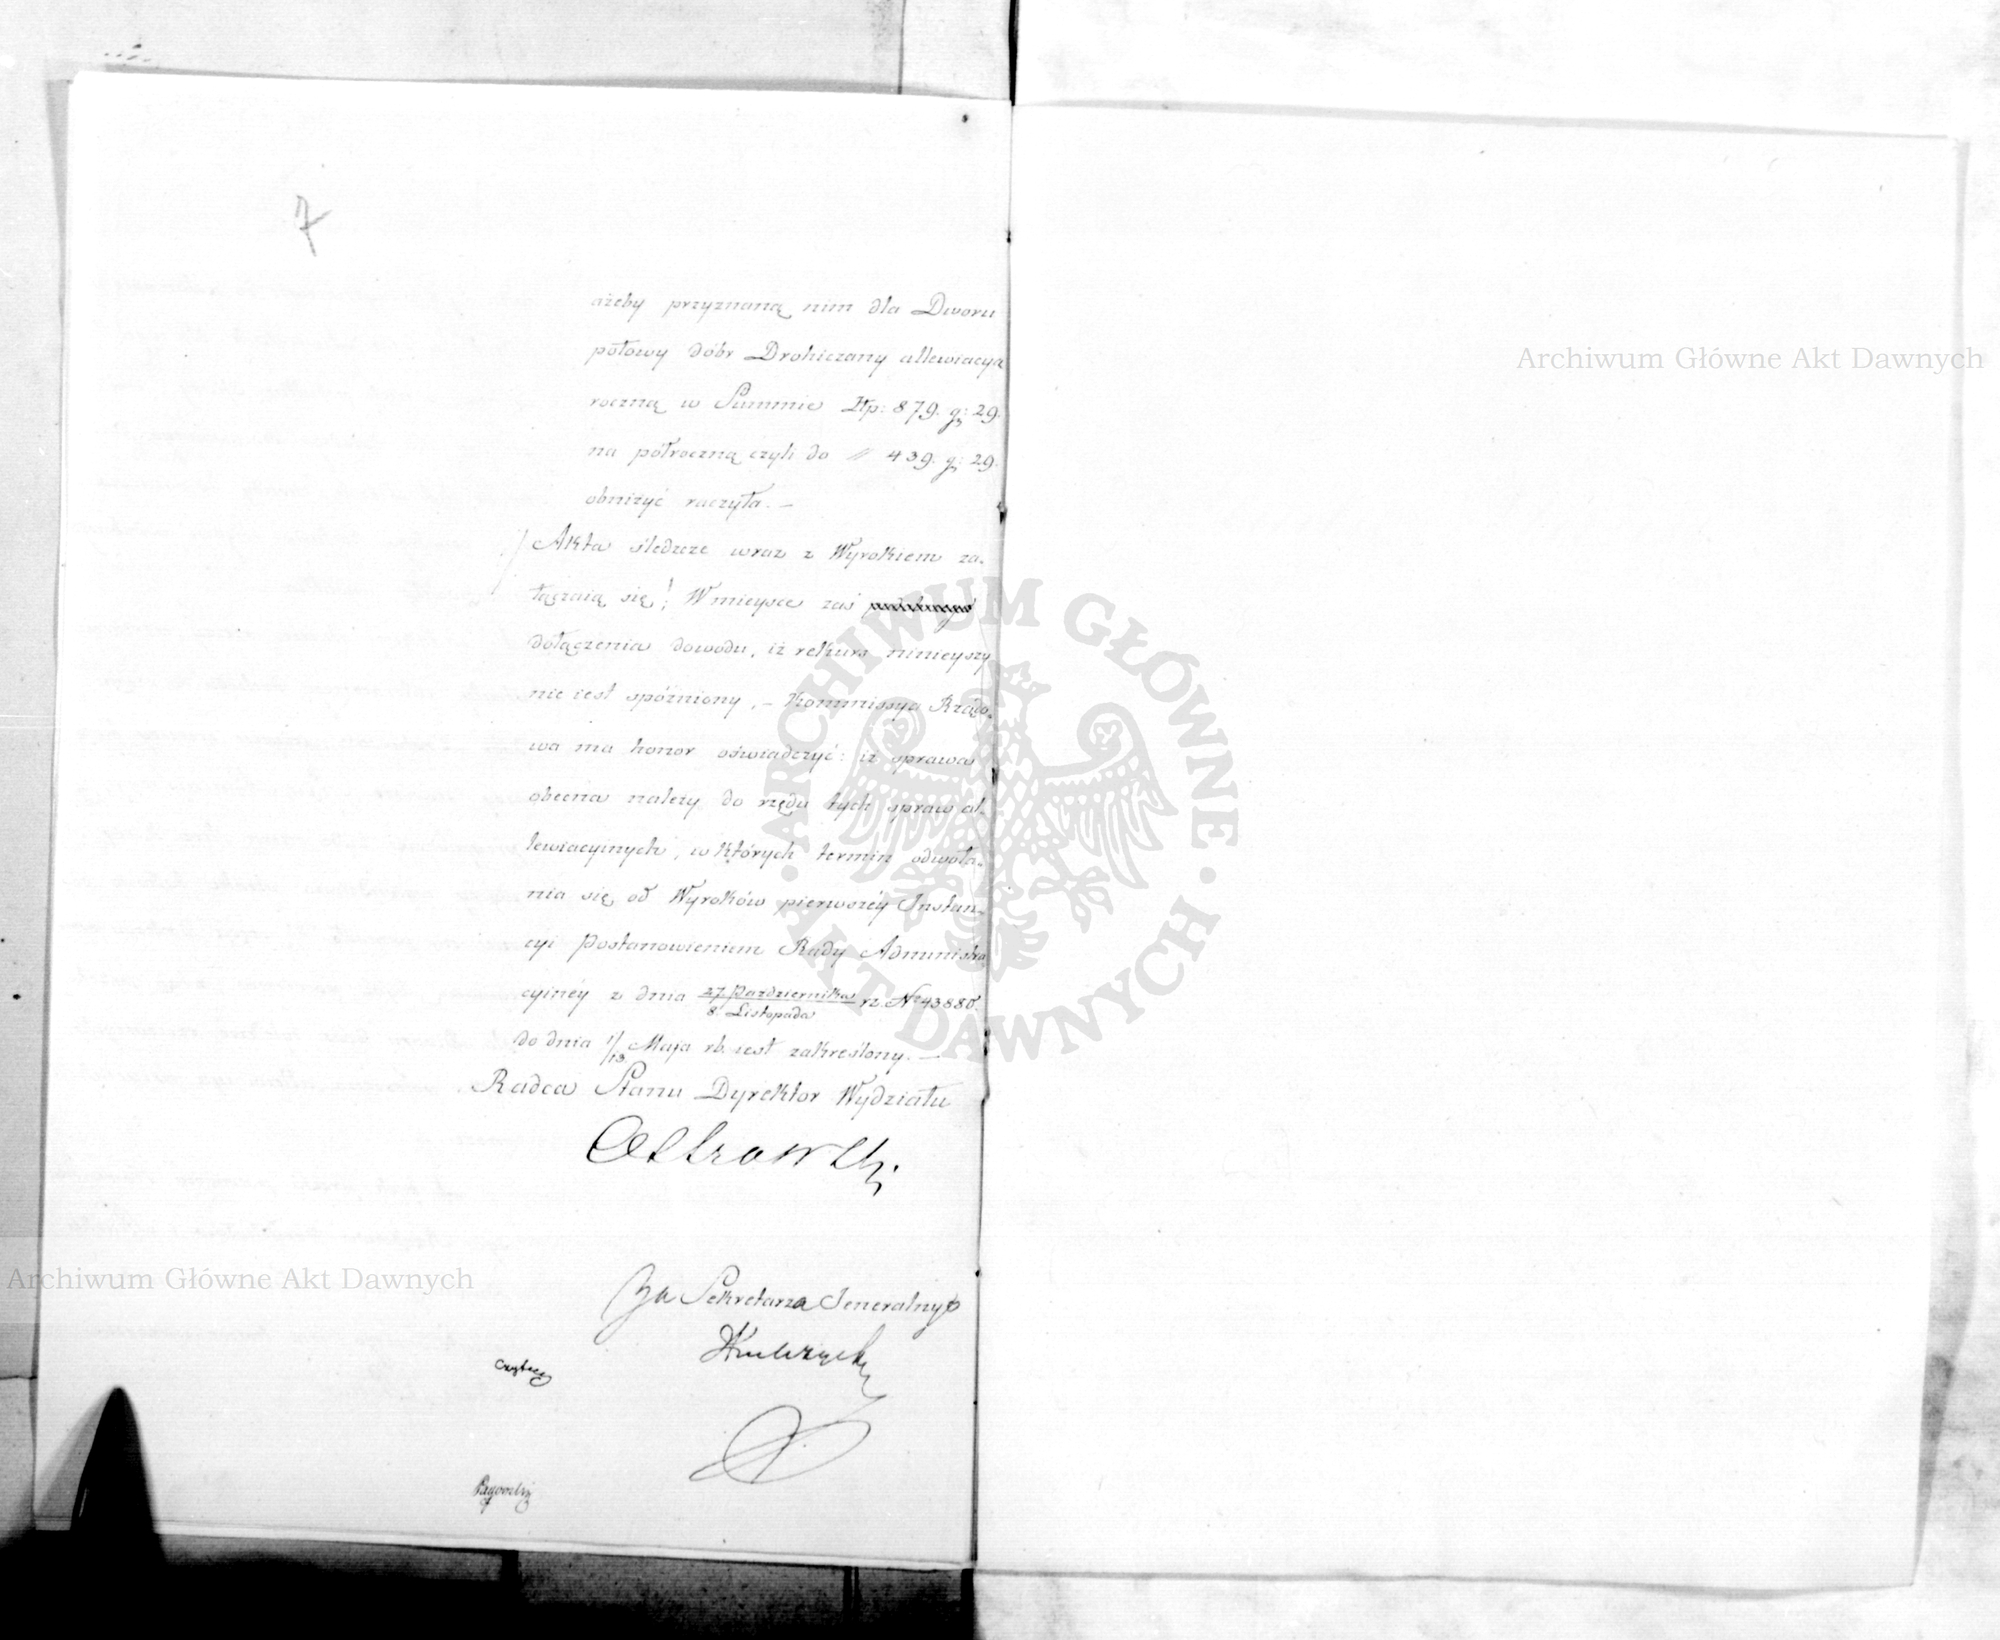 7
ażeby przyznaną nim dla Dworu
połowy dóbr Drohiczany allewiacyą
roczną w Summie Złp: 879. g: 29.
na półroczną czyli do " 439. g: 29.
obniżyć raczyła. —
Akta śledcze wraz z Wyrokiem za-
łączaią się! W mieysce zaś
dołączenia dowodu, iż rekurs ninieyszy
nie iest spóźniony, — Kommissya Rządo-
wa ma honor oświadczyć: iż sprawa
obecna należy do rzędu tych spraw al-
lewiacyinych, w których termin odwoła-
nia się od Wyroków pierwszéy Instan-
cyi Postanowieniem Rady Administra
cyinéy z dnia 27 Października/8 Listopada rz. No 43880.
do dnia 1/13. Maja rb. iest zakreślony. —
Radca Stanu Dyrektor Wydziału
Za Sekretarza Jeneralnyo
Archiwum Główne Akt Dawnych
Archiwum Główne Akt Dawnych
ARCHIWUM GŁÓWNE · AKT DAWNYCH ·